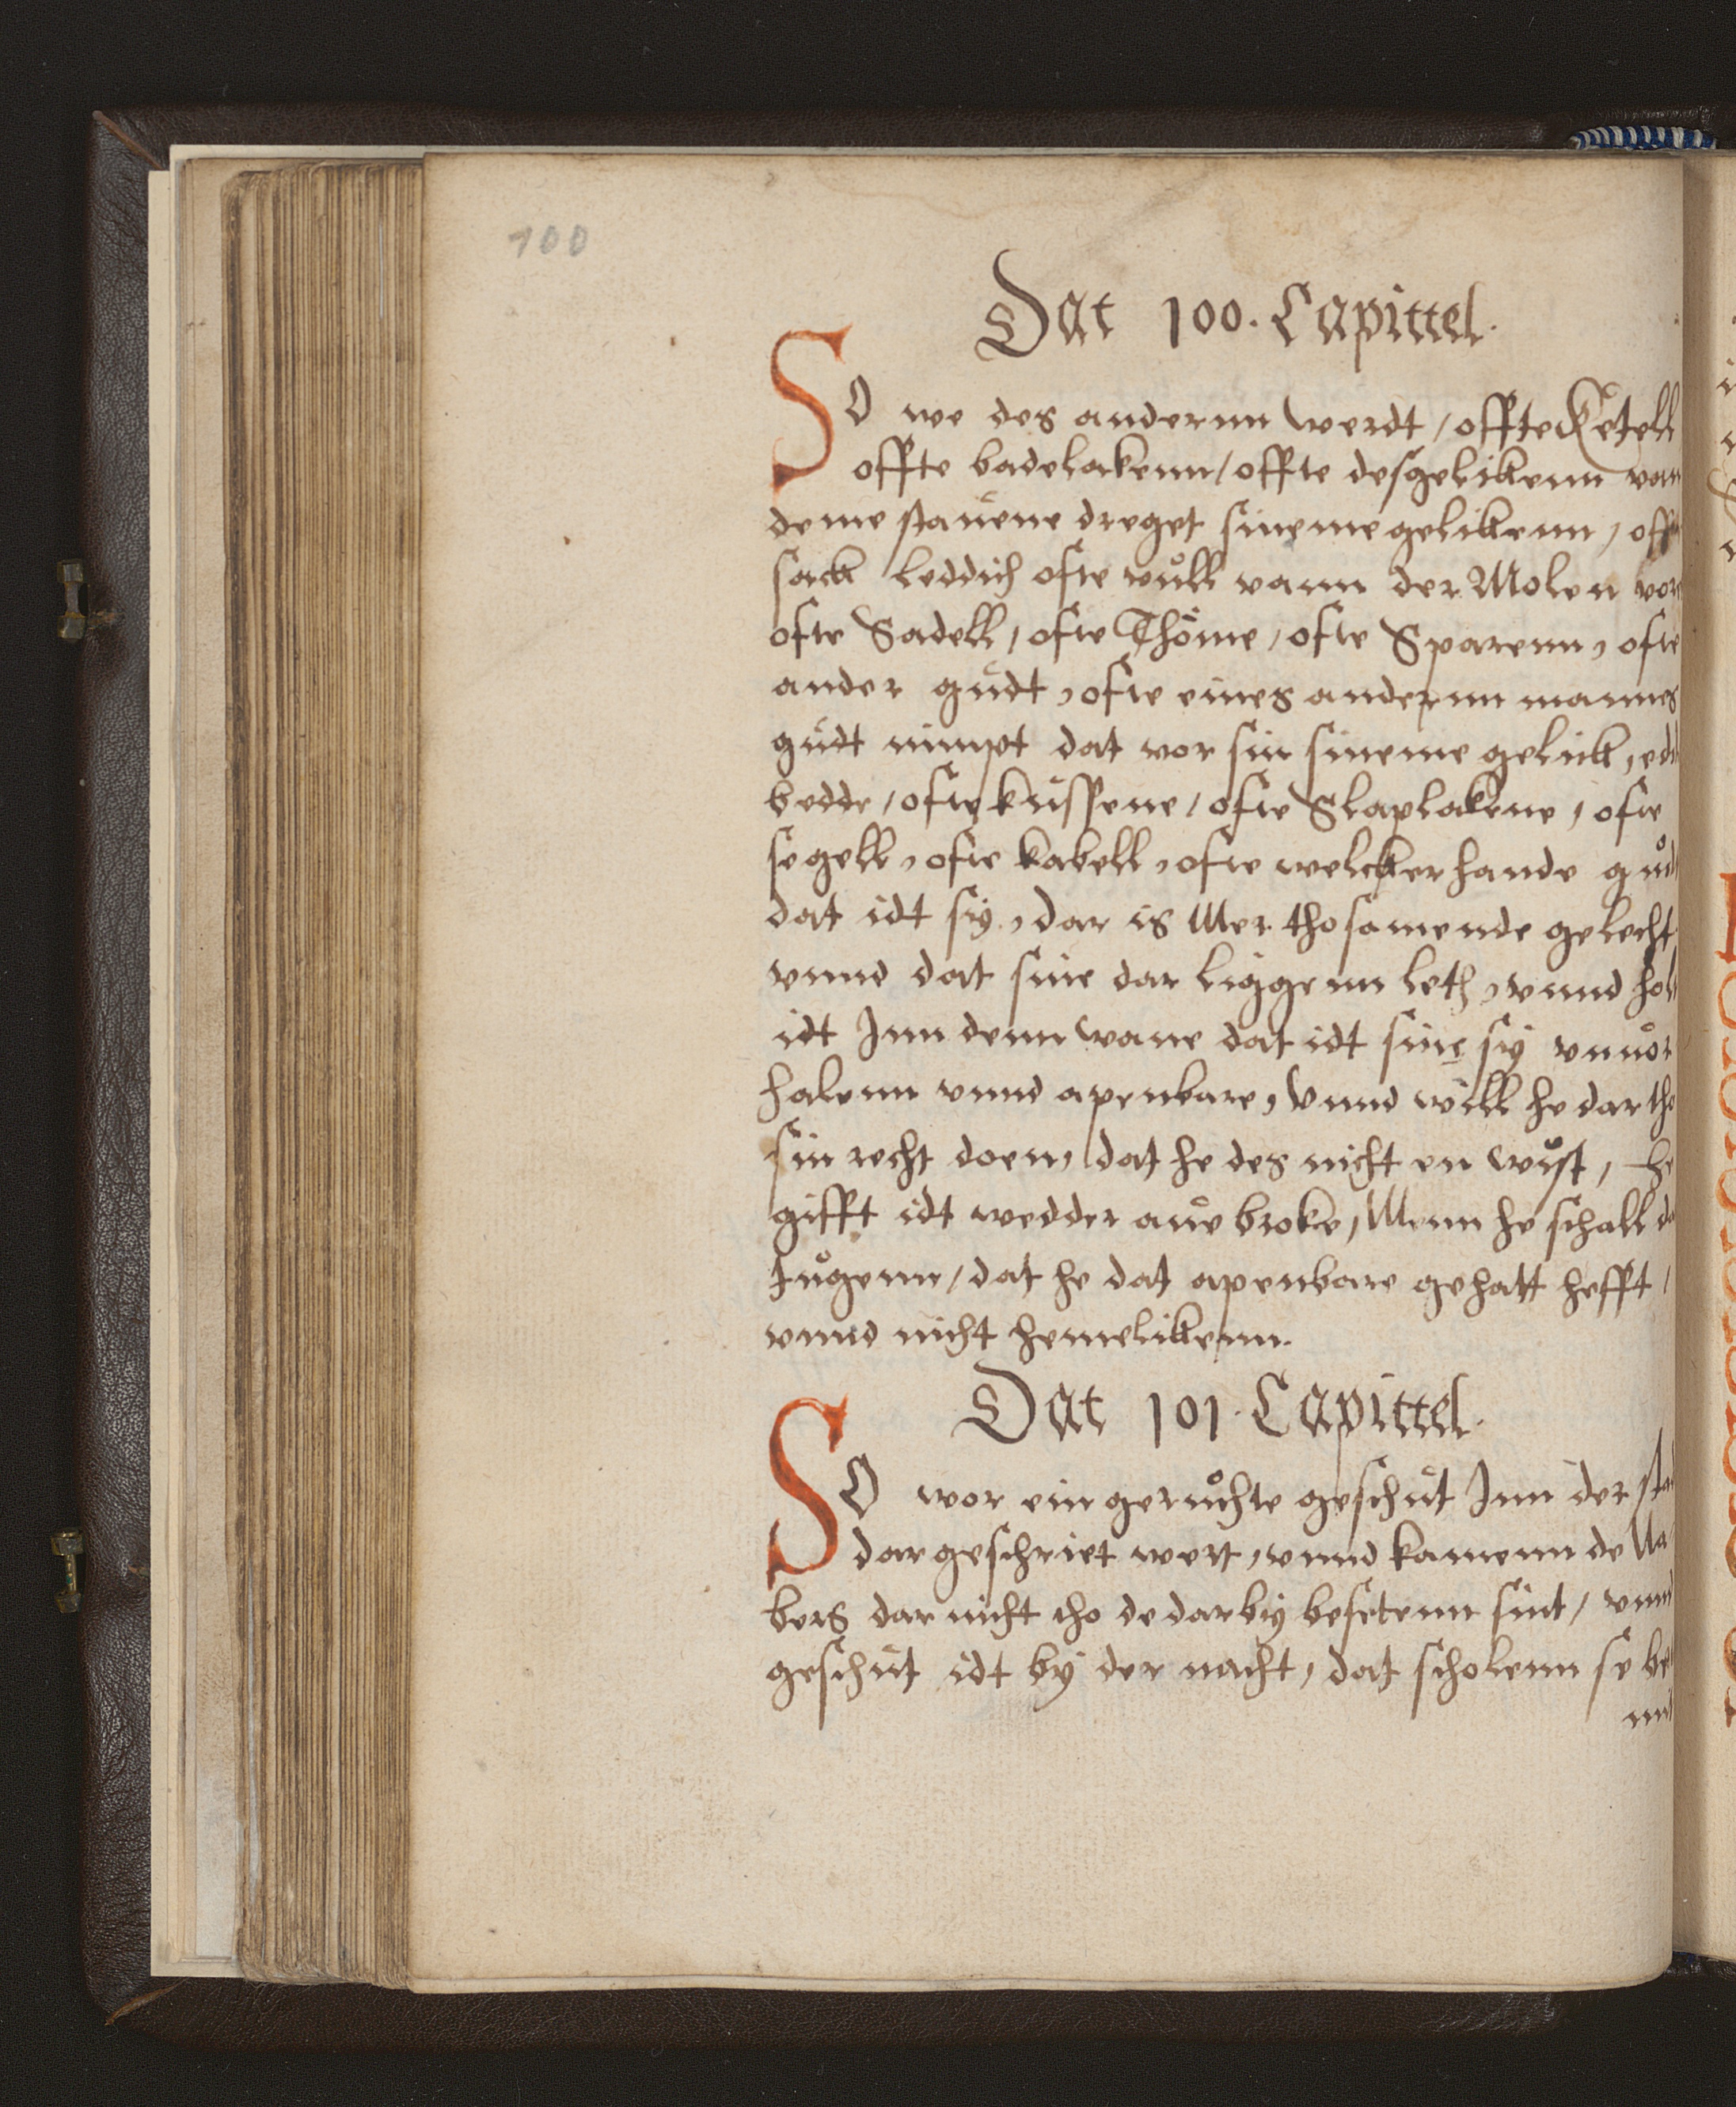 100
Dat 100. Capittel.
SO we des andernn Swerdt / offte Ketell
offte badelakenn / offte desgelikenn van
deme stauene dreget sineme gelikenn / offte
sack leddich ofte vull vann der Molen vor
ofte Sadell / ofte Thöme / ofte Sparenn, ofte
ander gudt, ofte eines andernn mannes
gudt nimpt dat vor sin sineme gelick, ed
bedde / ofte kussene / ofte Slaplakene, ofte
segell, ofte kabell, ofte welckerhande gud
dat idt sy, dar is Mer thosamende gelecht
vnnd dat sine dar liggenn leth, vnnd hol
idt Inn denn wane dat idt sine sy vnuor
halenn vnnd apenbare, Vnnd will he dar tho
sin recht doen, dat he des nicht en wust, he
gifft idt wedder ane broke, Menn he schall d
tugenn / dat he dat apenbare gehatt hefft /
vnnd nicht hemelikenn.
Dat 101. Capittel.
SO wor ein geruchte geschut Inn der sta
dar geschriet wert, vnnd kamenn de Na
bers dar nicht tho de darby besetenn sint / vnnd
geschut idt by der nacht, dat scholenn se be